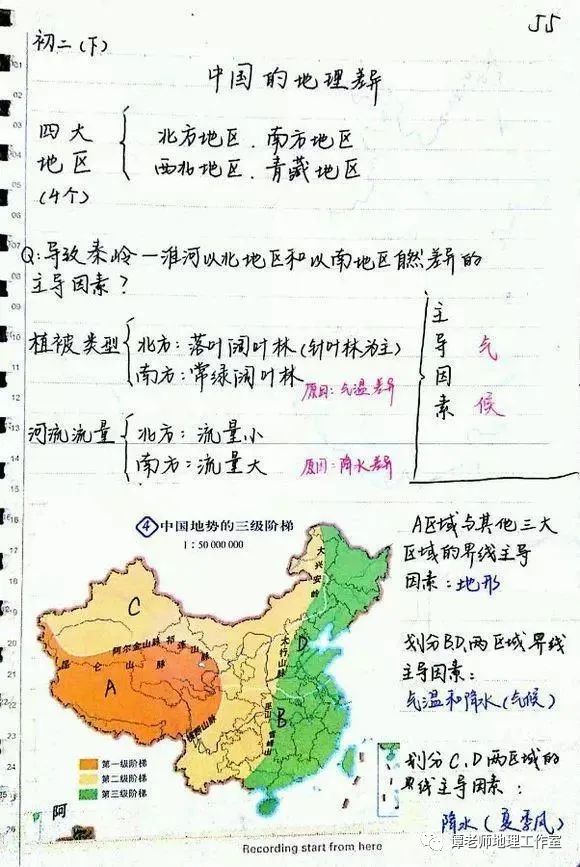 55
初二(下)
中国的地理差异
四大
地区
(4个)
北方地区、南方地区
西北地区、青藏地区
Q:导致秦岭一淮河以北地区和以南地区自然差异的
主导因素?
植被类型
北方:落叶阔叶林(针叶林为主)
南方:常绿阔叶林
原因:气温差异
河流流量
北方:流量小
南方:流量大
原因:降水差异
主导因素
气候
④中国地势的三级阶梯
1:50 000 000
大兴安岭
太行山脉
巫山
雪峰山
阿尔金山脉
祁连山脉
昆仑山脉
横断山脉
A
B
C
D
第一级阶梯
第二级阶梯
第三级阶梯
A区域与其他三大
区域的界线主导
因素:地形
划分BD两区域界线
主导因素:
气温和降水(气候)
划分C、D两区域的
界线主导因素:
降水(夏季风)
阿
Recording start from here
谭老师地理工作室